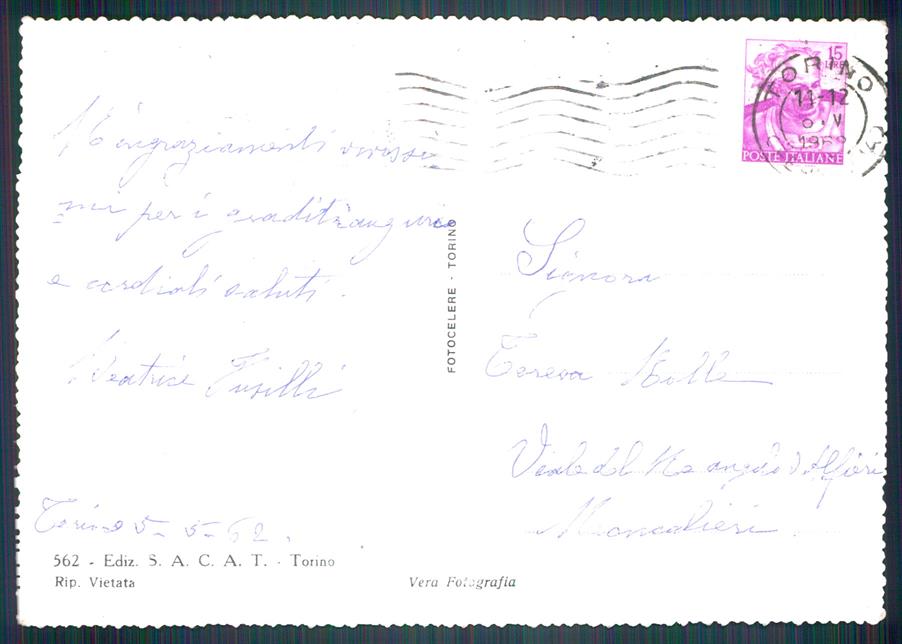 Ringraziamenti vivissi
mi per i graditi auguri
e cordiali saluti.
Beatrice Fusilli
Torino 5-5-62.
562 - Ediz. S. A. C. A. T. - Torino
Rip. Vietata
Vera Fotografia
FOTOCELERE - TORINO
15
LIRE
POSTE ITALIANE
TORINO
11-12
Signora
Teresa
Viale del d'Alfieri
Moncalieri